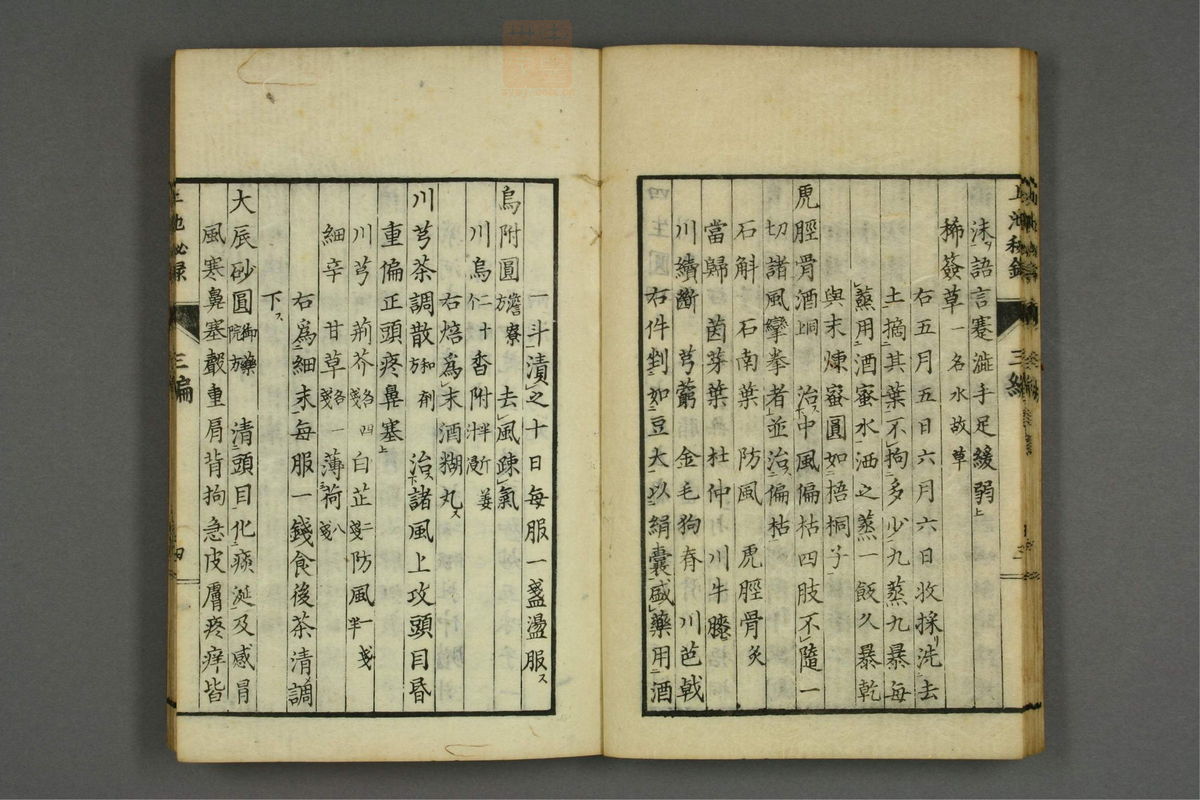 沫ッ語言蹇澁手足緩弱上
稀簽草一名水故草
右五月五日六月六日收採リ洗去
土摘其葉不拘多少九蒸九暴每
蒸用酒蜜水洒之蒸一飯久暴乾
與末煉蜜圓如梧桐子
虎脛骨酒上同 治ス中風偏枯四肢不隨一
切諸風攣拳者並治ス偏枯
石斛 石南葉 防風 虎脛骨炙
當歸 茵芋葉 杜仲 川牛膝
川續斷 芎藭 金毛狗脊 川芭戟
右件剉如豆大以絹囊盛藥用酒
一斗漬之十日每服一盞盪服ス
烏附圓澹寮方 去風疎氣
川烏仁十 香附半斤 姜汁浸
右焙爲末酒糊丸ス
川芎茶調散和劑方 治ス諸風上攻頭目昏
重偏正頭疼鼻塞上
川芎 荊芥各四戔 白芷二戔 防風一戔半
細辛 甘草各一戔 薄荷八戔
右爲細末每服一錢食後茶清調
下ス
大辰砂圓御藥院方 清頭目化痰涎及感冒
風寒鼻塞聲重肩背拘急皮膚疼痒皆
三編
三編
四